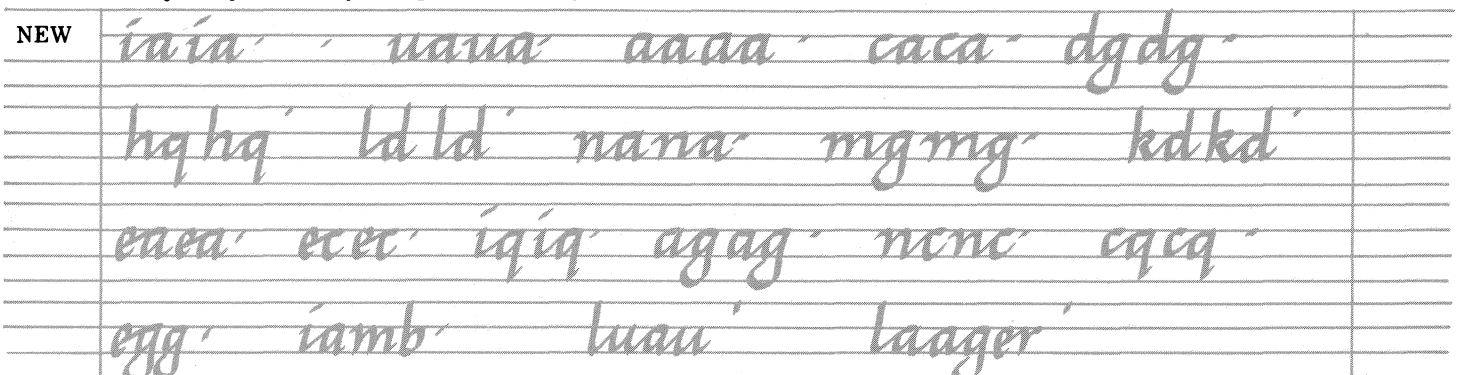 NEW iaia uaua aaaa caca dgdg
hqhq ldld nana mgmg kdkd
eaea ecec iqiq agag ncnc cqcq
egg iamb luau laager